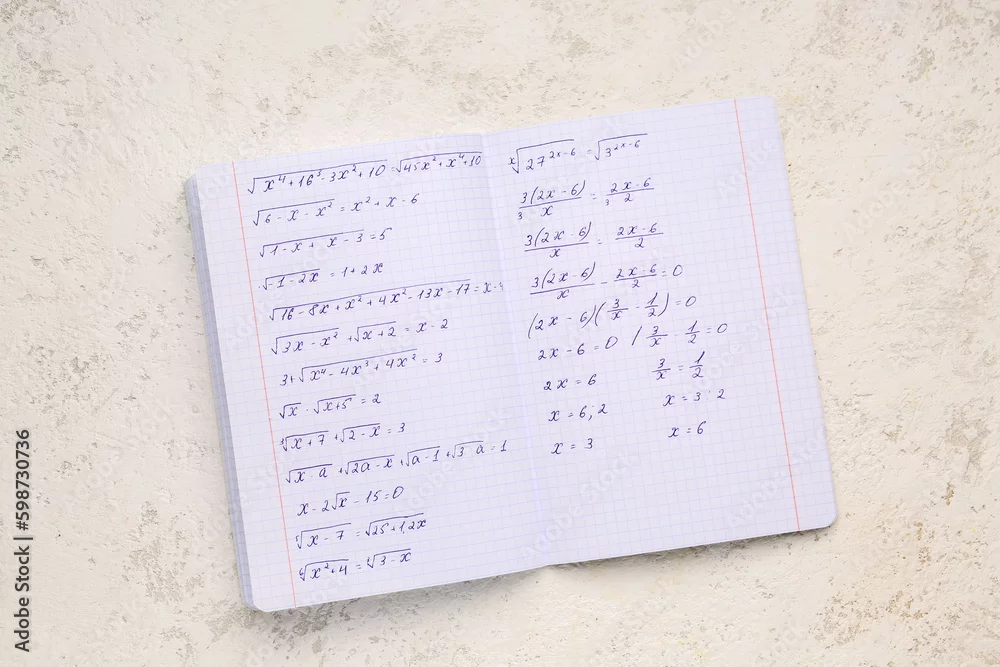 √(x⁴+16³-3x²+10) = √(45x²+x⁴+10)
√(6-x-x²) = x²+x-6
√(1-x+x-3) = 5
√(-1-2x) = 1+2x
√(16-8x+x²+4x²-13x-17) = x-4
√(3x-x²) + √(x+2) = x-2
3+√(x⁴-4x³+4x²) = 3
√x - √(x+5) = 2
√(x+7) + √(2-x) = 3
√(x-a) + √(2a-x) + √(a-1) + √(3-a) = 1
x-2√x-15=0
⁵√(x-7) = √(25+1,2x)
⁶√(x²+4) = √(3-x)
ˣ√(27²ˣ⁻⁶) = √(3²ˣ⁻⁶)
3^(3(2x-6)/x) = 3^((2x-6)/2)
3(2x-6)/x = (2x-6)/2
3(2x-6)/x - (2x-6)/2 = 0
(2x-6)(3/x - 1/2) = 0
2x-6=0 / 3/x - 1/2 = 0
2x=6 3/x = 1/2
x=6;2 x=3:2
x=3 x=6
Adobe Stock | #598730736